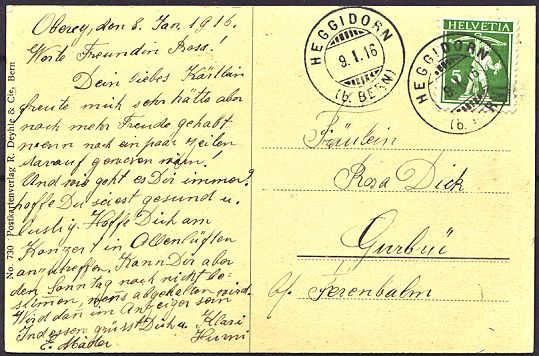 Oberey, den 8. Jan. 1916.
Werte Freundin Rosa!
Dein liebes Kärtlein
freute mich sehr hätte aber
noch mehr Freude gehabt
wenn noch ein paar Zeilen
darauf gewesen wären!
Und wie geht es Dir immer?
hoffe Du seiest gesund u.
lustig. Hoffe Dich am
Konzert in Allenlüften
anzutreffen. Kann Dir aber
den Sonntag noch nicht be-
stimmen, wenns abgehalten wird.
Wird dan im Anzeiger sein
Indessen grüsst Dich u. Klasi
E. Mäder Hurni
No. 730 Postkartenverlag R. Deyhle & Cie., Bern
HEGGIDORN
9.I.16
(b. BERN)
HELVETIA
5
HEGGIDORN
(b.
Fräulein
Rosa Dick
Gurbrü
b/. Ferenbalm